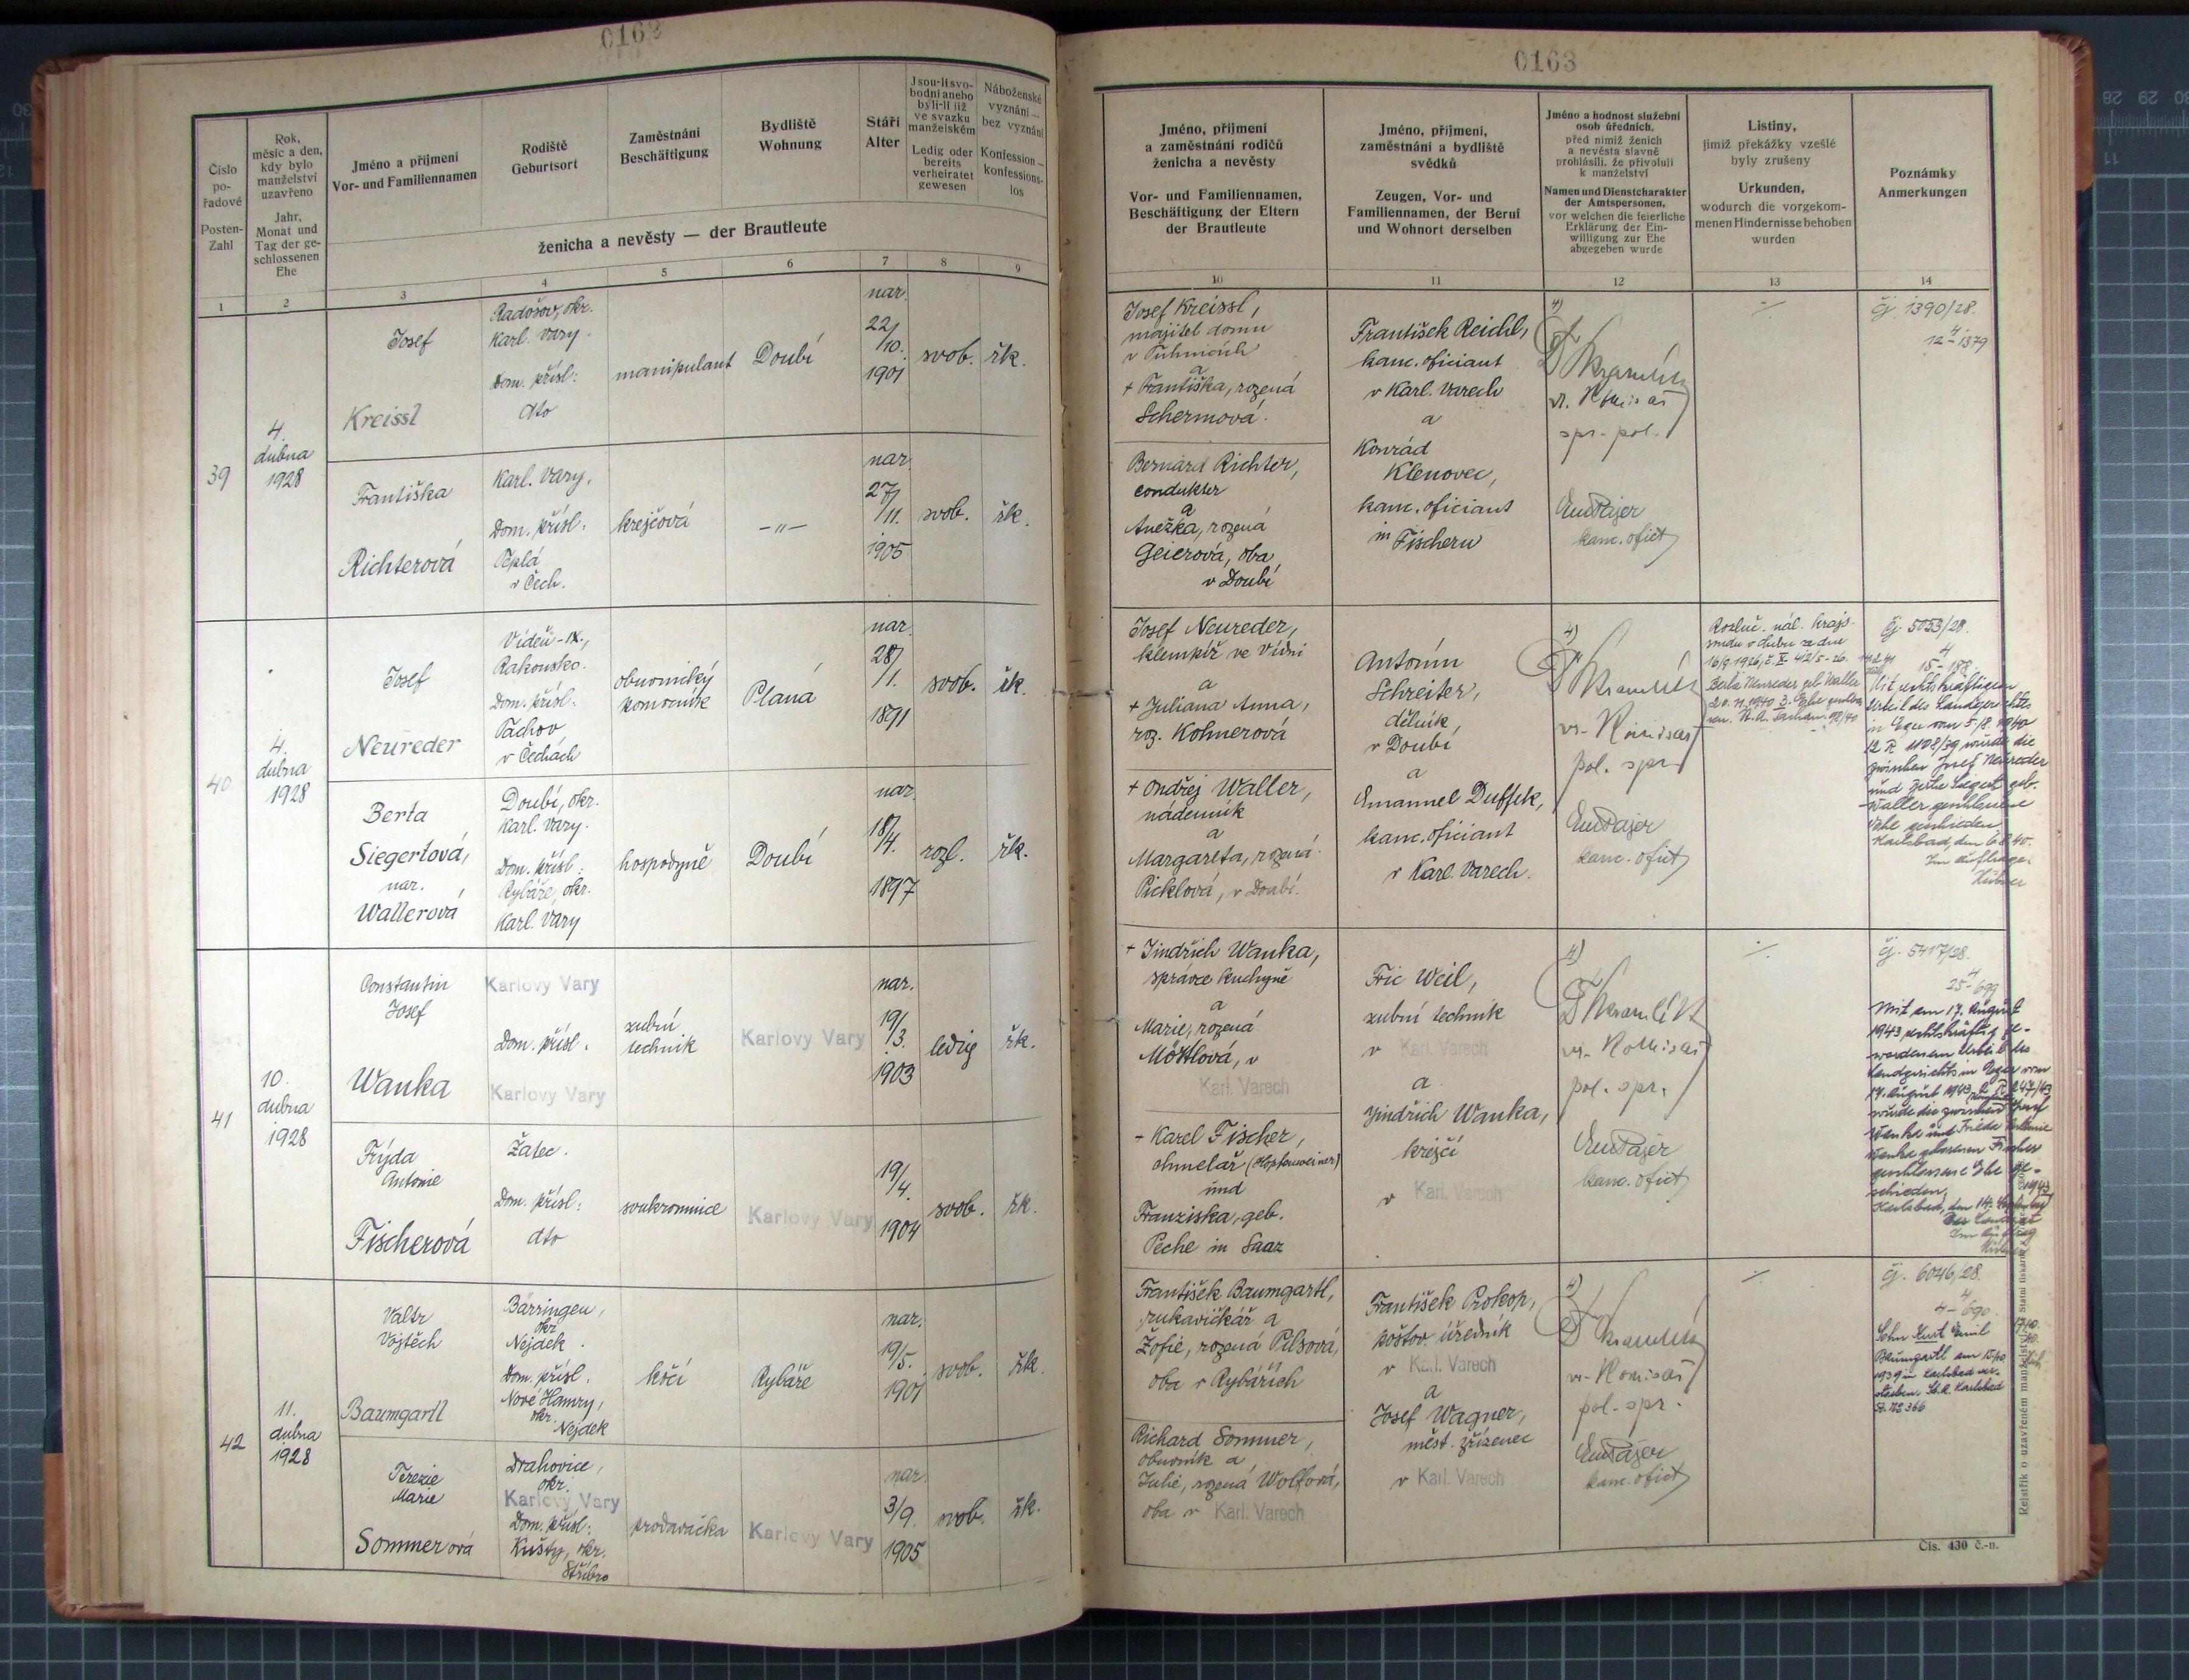 0163
Číslo
po-
řadové
Posten-
Zahl
Rok,
měsíc a den,
kdy bylo
manželství
uzavřeno
Jahr,
Monat und
Tag der ge-
schlossenen
Ehe
Jméno a příjmení
Vor- und Familiennamen
Rodiště
Geburtsort
Zaměstnání
Beschäftigung
Bydliště
Wohnung
Stáří
Alter
Jsou-li svo-
bodni anebo
byli-li již
ve svazku
manželském
Ledig oder
bereits
verheiratet
gewesen
Náboženské
vyznání —
bez vyznání
Konfession —
konfessions-
los
ženicha a nevěsty — der Brautleute
1 2 3 4 5 6 7 8 9
39
4.
dubna
1928
Josef
Kreissl
Radošov, okr.
Karl. Vary.
Dom. přísl:
dto
manipulant
Doubí
nar.
22/
/10.
1901
svob.
řk.
Františka
Richterová
Karl. Vary.
Dom. přísl:
Teplá
v Čech.
krejčová
—„—
nar.
27/
/11.
1905
svob.
řk.
40
4.
dubna
1928
Josef
Neureder
Vídeň-IX.,
Rakousko.
Dom. přísl:
Tachov
v Čechách
obuvnický
pomocník
Planá
nar.
28/
/1.
1891
svob.
řk.
Berta
Siegertová,
nar.
Wallerová
Doubí, okr.
Karl. Vary.
Dom. přísl:
Rybáře, okr.
Karl. Vary
hospodyně
Doubí
nar.
18/
/4.
1897
rozl.
řk.
41
10.
dubna
1928
Constantin
Josef
Wanka
Karlovy Vary
Dom. přísl.
Karlovy Vary
zubní
technik
Karlovy Vary
nar.
19/
/3.
1903
ledig
řk.
Frýda
Antonie
Fischerová
Žatec.
Dom. přísl:
dto
soukromnice
Karlovy Vary
19/
/4.
1904
svob.
řk.
42
11.
dubna
1928
Valtr
Vojtěch
Baumgartl
Bärringen,
okr
Nejdek.
Dom. přísl.
Nové Hamry,
okr.
Nejdek
kočí
Rybáře
nar.
19/
/5.
1901
svob.
řk.
Terezie
Marie
Sommerová
Drahovice,
okr.
Karlovy Vary
Dom. přísl:
okr.
Stříbro
prodavačka
Karlovy Vary
nar.
3/
/9.
1905
svob.
řk.
0163
Jméno, příjmení
a zaměstnání rodičů
ženicha a nevěsty
Vor- und Familiennamen,
Beschäftigung der Eltern
der Brautleute
Jméno, příjmení,
zaměstnání a bydliště
svědků
Zeugen, Vor- und
Familiennamen, der Beruf
und Wohnort derselben
Jméno a hodnost služební
osob úředních,
před nimiž ženich
a nevěsta slavně
prohlásili, že přivolují
k manželství
Namen und Dienstcharakter
der Amtspersonen,
vor welchen die feierliche
Erklärung der Ein-
willigung zur Ehe
abgegeben wurde
Listiny,
jimiž překážky vzešlé
byly zrušeny
Urkunden,
wodurch die vorgekom-
menen Hindernisse behoben
wurden
Poznámky
Anmerkungen
10 11 12 13 14
Josef Kreissl,
majitel domu
v Tuhnicích
a
+ Františka, rozená
Schermová.
Bernard Richter,
condukter
a
Anežka, rozená
Geierová, oba
v Doubí
František Reichl,
kanc. oficiant
v Karl. Varech
a
Konrád
Klenovec,
kanc. oficiant
in Fischern
4)
vr. Komisař
spr. pol.
kanc. ofict
čj 1390/28.
4
12- 1379
Josef Neureder,
klempíř ve Vídni
a
+ Juliana Anna,
roz. Kohnerová
+ Ondřej Waller,
nádenník
a
Margareta, rozená
Picklová, v Doubí.
Antonín
Schreiter,
dělník,
v Doubí
a
Emanuel Duffek,
kanc. oficiant
v Karl. Varech.
4)
vr. Komisař
pol. spr.
kanc. ofict
čj. 5053/28.
4
Mit rechtskräftigem
Urteil des Landgerichts
in Eger vom 5/8. 1940
wurde die
zwischen Josef Neureder
und Berta Siegert geb.
Waller geschlossene
Ehe geschieden
Karlsbad, den
Im Auftrage:
+ Jindřich Wanka,
správce kuchyně
a
Marie, rozená
Möstlová, v
Karl. Varech
+ Karel Fischer,
chmelař (Hopfenweiner)
und
Franziska, geb.
Peche in Saaz
Fric Weil,
zubní technik
v Karl. Varech
a
Jindřich Wanka,
krejčí
v Karl. Varech
4)
vr. Komisař
pol. spr.
kanc. ofict
čj. 5417/28.
4
25- 699
Mit am 17. August
1943 rechtskräftig ge-
wordenem Urteil des
Landgerichts in Eger vom
17. August 1943
wurde die zwischen Josef
Wanka und Frieda Antonie
Wanka geborenen Fischer
geschlossene Ehe ge-
schieden,
Karlsbad, den 14. September 1943
Der Landrat
Im Auftrag
František Baumgartl,
rukavičkář a
Žofie, rozená Pilsová,
oba v Rybářích
Richard Sommer,
obuvník a
Julie, rozená Wolfová,
oba v Karl. Varech
František Prokop,
poštov. úředník
v Karl. Varech
a
Josef Wagner,
měst. zřízenec
v Karl. Varech
4)
vr. Komisař
pol. spr.
kanc. ofict
čj. 6046/28.
4
4- 690
Sohn Kurt Emil
Baumgartl am
1939 in Karlsbad ver-
storben. St. A. Karlsbad
366
Čís. 430 č.-n.